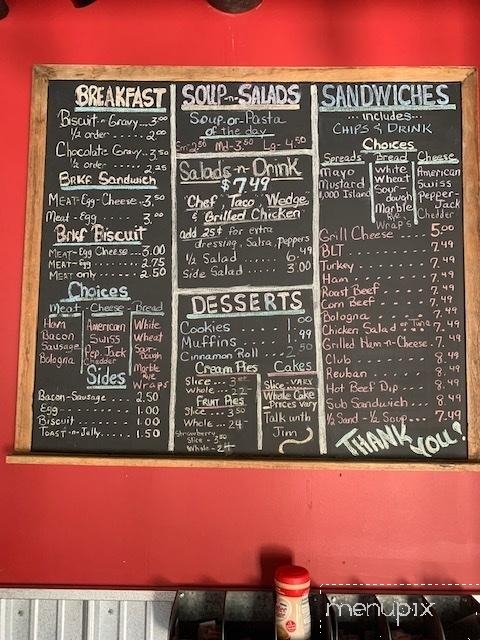 BREAKFAST
Biscuit-n-Gravy...3.00
1/2 order.......2.00
Chocolate Gravy...3.50
1/2 order.......2.25
BrKF Sandwich
MEAT-Egg-Cheese...3.50
Meat-Egg.......3.00
BrKf Biscuit
MEAT-Egg Cheese...3.00
MEAT-Egg.......2.75
MEAT only.......2.50
Choices
Meat - Cheese - Bread
Ham American White
Bacon Swiss Wheat
Sausage Pep. Jack Sour-dough
Bologna Chedder Marble
Rye
Wraps
Sides
Bacon-Sausage.....2.50
Egg.......1.00
Biscuit.......1.00
Toast-n-Jelly.....1.50
SOUP-n-SALADS
Soup-or-Pasta
of the day
Sm-2.50 Md-3.50 Lg-4.50
Salads-n-Drink
$7.49
"Chef, Taco, Wedge,
& Grilled Chicken"
add 25¢ for extra
dressing, Salsa, Peppers
1/2 Salad.......6.49
Side Salad.......3.00
DESSERTS
Cookies.......1.00
Muffins.......1.99
Cinnamon Roll.......2.50
Cream Pies
Slice
Whole
FRUIT PIES
Slice...3.50
Whole...24
Strawberry
Slice-3.50
Whole-24
Cakes
Slice...VARY
Whole Cake
Prices vary
Talk with
Jim
SANDWICHES
...includes...
CHIPS & DRINK
Choices
Spreads Bread Cheese
Mayo White American
Mustard Wheat Swiss
1,000 Island Sour-dough Pepper-Jack
Marble Chedder
Rye
Wraps
Grill Cheese....5.00
BLT.......7.49
Turkey.......7.49
Ham.......7.49
Roast Beef.......7.49
Corn Beef.......7.49
Bologna.......7.49
Chicken Salad or Tuna.7.49
Grilled Ham-n-Cheese..7.49
Club.......8.49
Reuban.......8.49
Hot Beef Dip.......8.49
Sub Sandwich.......8.49
1/2 Sand-1/2 Soup...7.49
THANK YOU!
menupix